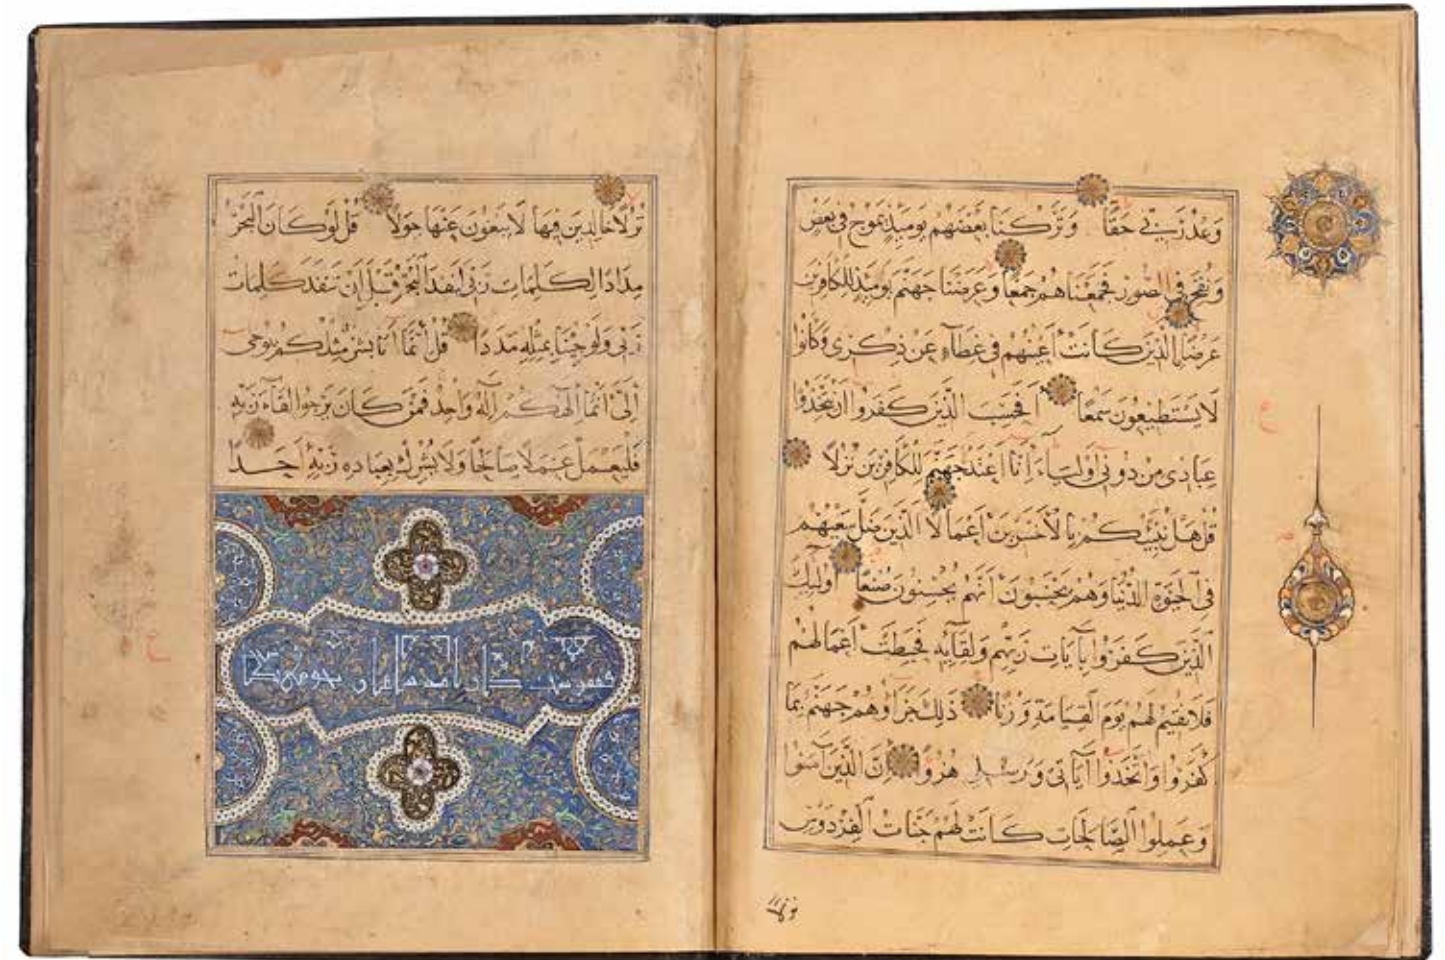 وعد ربي حقا وتركنا بعضهم يومئذ يموج في بعض
ونفخ في الصور فجمعناهم جمعا وعرضنا جهنم يومئذ للكافرين
عرضا الذين كانت أعينهم في غطاء عن ذكري وكانوا
لا يستطيعون سمعا أفحسب الذين كفروا أن يتخذوا
عبادي من دوني أولياء إنا أعتدنا جهنم للكافرين نزلا
قل هل ننبئكم بالأخسرين أعمالا الذين ضل سعيهم
في الحيوة الدنيا وهم يحسبون أنهم يحسنون صنعا أولئك
الذين كفروا بآيات ربهم ولقائه فحبطت أعمالهم
فلا نقيم لهم يوم القيامة وزنا ذلك جزاؤهم جهنم بما
كفروا واتخذوا آياتي ورسلي هزوا إن الذين آمنوا
وعملوا الصالحات كانت لهم جنات الفردوس
نزلا
نزلا خالدين فيها لا يبغون عنها حولا قل لو كان البحر
مدادا لكلمات ربي لنفد البحر قبل أن تنفد كلمات
ربي ولو جئنا بمثله مددا قل إنما أنا بشر مثلكم يوحى
إلي أنما إلهكم إله واحد فمن كان يرجوا لقاء ربه
فليعمل عملا صالحا ولا يشرك بعباده ربه أحدا